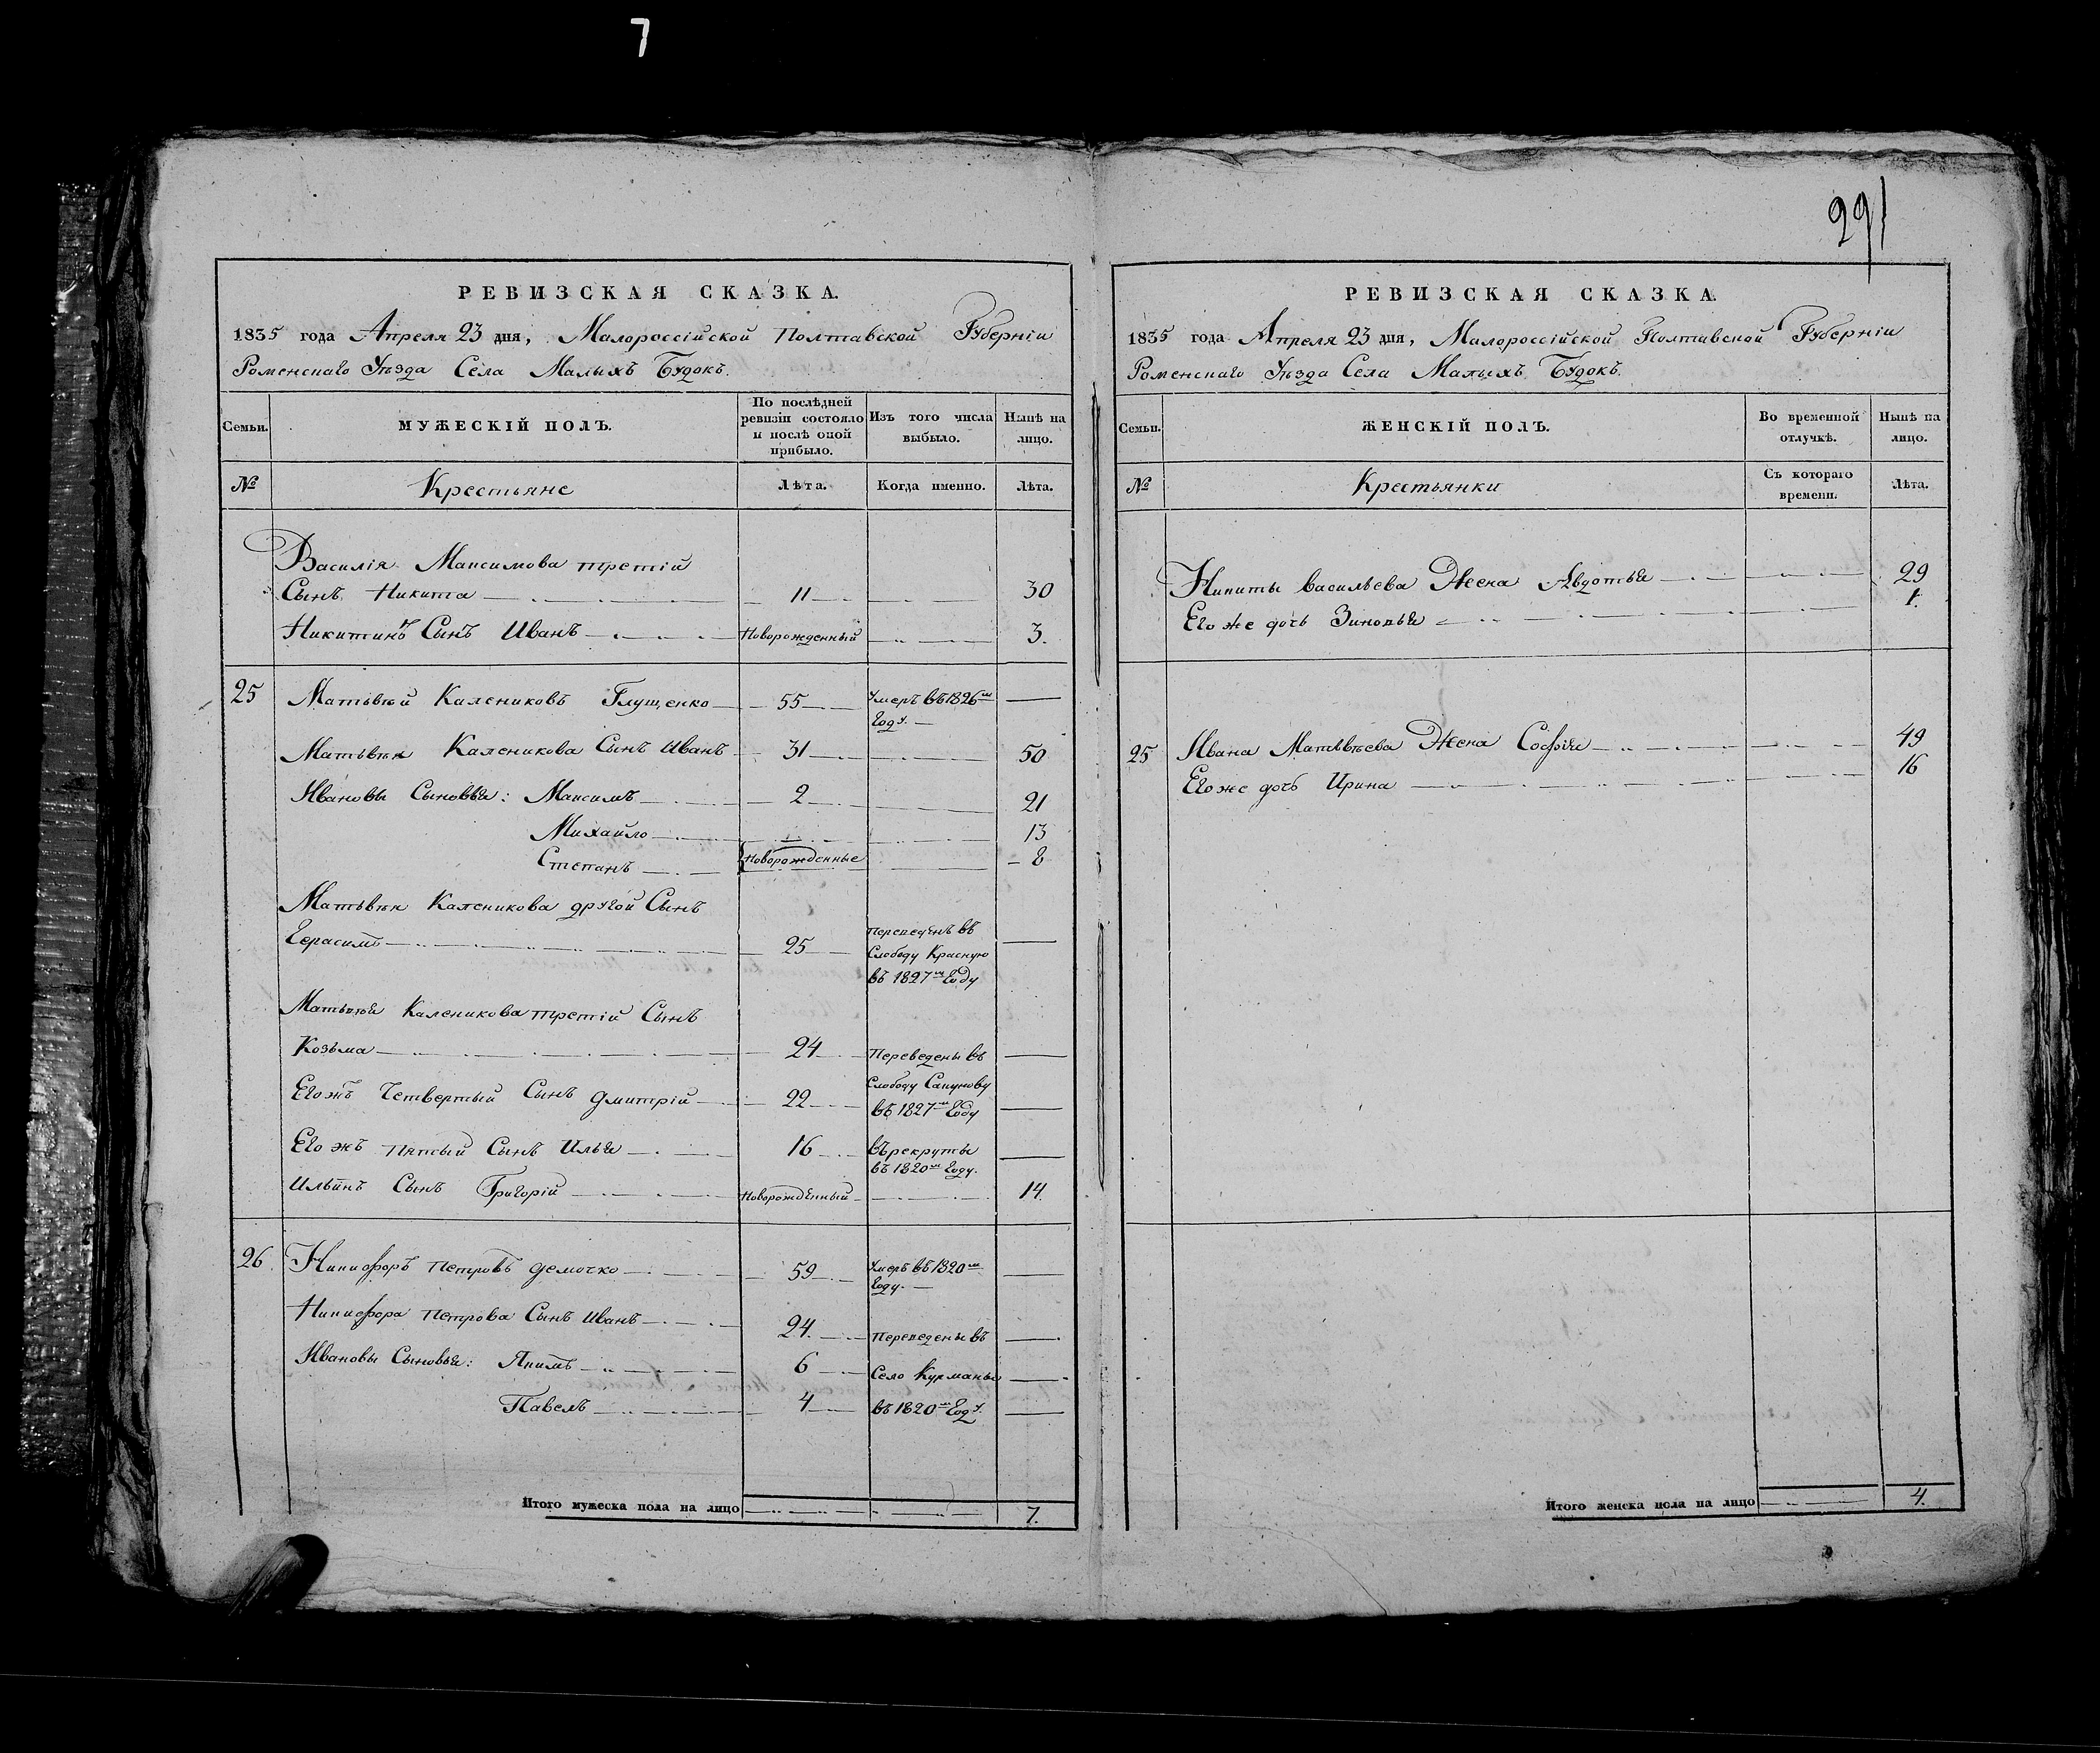 7
291
РЕВИЗСКАЯ СКАЗКА.
1835 года Апреля 23 дня, Малороссійской Полтавской Губерніи
Роменскаго Уѣзда Села Малыхъ Будокъ.
Семьи.
МУЖЕСКІЙ ПОЛЪ.
По послѣдней
ревизіи состояло
и послѣ оной
прибыло.
Изъ того числа
выбыло.
Нынѣ на
лицо.
№
Крестьяне
Лѣта.
Когда именно.
Лѣта.
Василія Максимова третій
Сынъ Никита 11 30
Никитинъ Сынъ Иванъ Новорожденный 3.
25 Матвѣй Калениковъ Глущенко 55 Умеръ въ 1826м
Году.
Матвѣя Каленикова Сынъ Иванъ 31 50
Ивановы Сыновья: Максимъ 2 21
Михайло 13
Степанъ Новорожденные 8
Матвѣя Каленикова другой Сынъ
Герасимъ 25 Переведенъ въ
Слободу Красную
въ 1827м Году
Матвѣя Каленикова третій Сынъ
Козьма 24 Переведены въ
Слободу Сапунову
Егожъ Четвертый Сынъ Дмитрій 22 въ 1827м Году
Его жъ Пятый Сынъ Илья 16 въ рекруты
въ 1820м Году.
Ильинъ Сынъ Григорій Новорожденный 14.
26. Никифоръ Петровъ Демочко 59 Умеръ въ 1820м
Году.
Никифора Петрова Сынъ Иванъ 24. Переведены въ
Ивановы Сыновья: Якимъ 6 Село Курманы
Павелъ 4 въ 1820м Году.
Итого мужеска пола на лицо 7.
РЕВИЗСКАЯ СКАЗКА.
1835 года Апреля 23 дня, Малороссійской Полтавской Губерніи
Роменскаго Уѣзда Села Малыхъ Будокъ.
Семьи.
ЖЕНСКІЙ ПОЛЪ.
Во временной
отлучкѣ.
Нынѣ на
лицо.
№
Крестьянки
Съ котораго
времени.
Лѣта.
Никиты Васильева Жена Авдотья 29
Его же дочь Зиновья 1.
25 Ивана Матвѣева Жена Софія 49
Его же дочь Ирина 16
Итого женска пола на лицо 4.